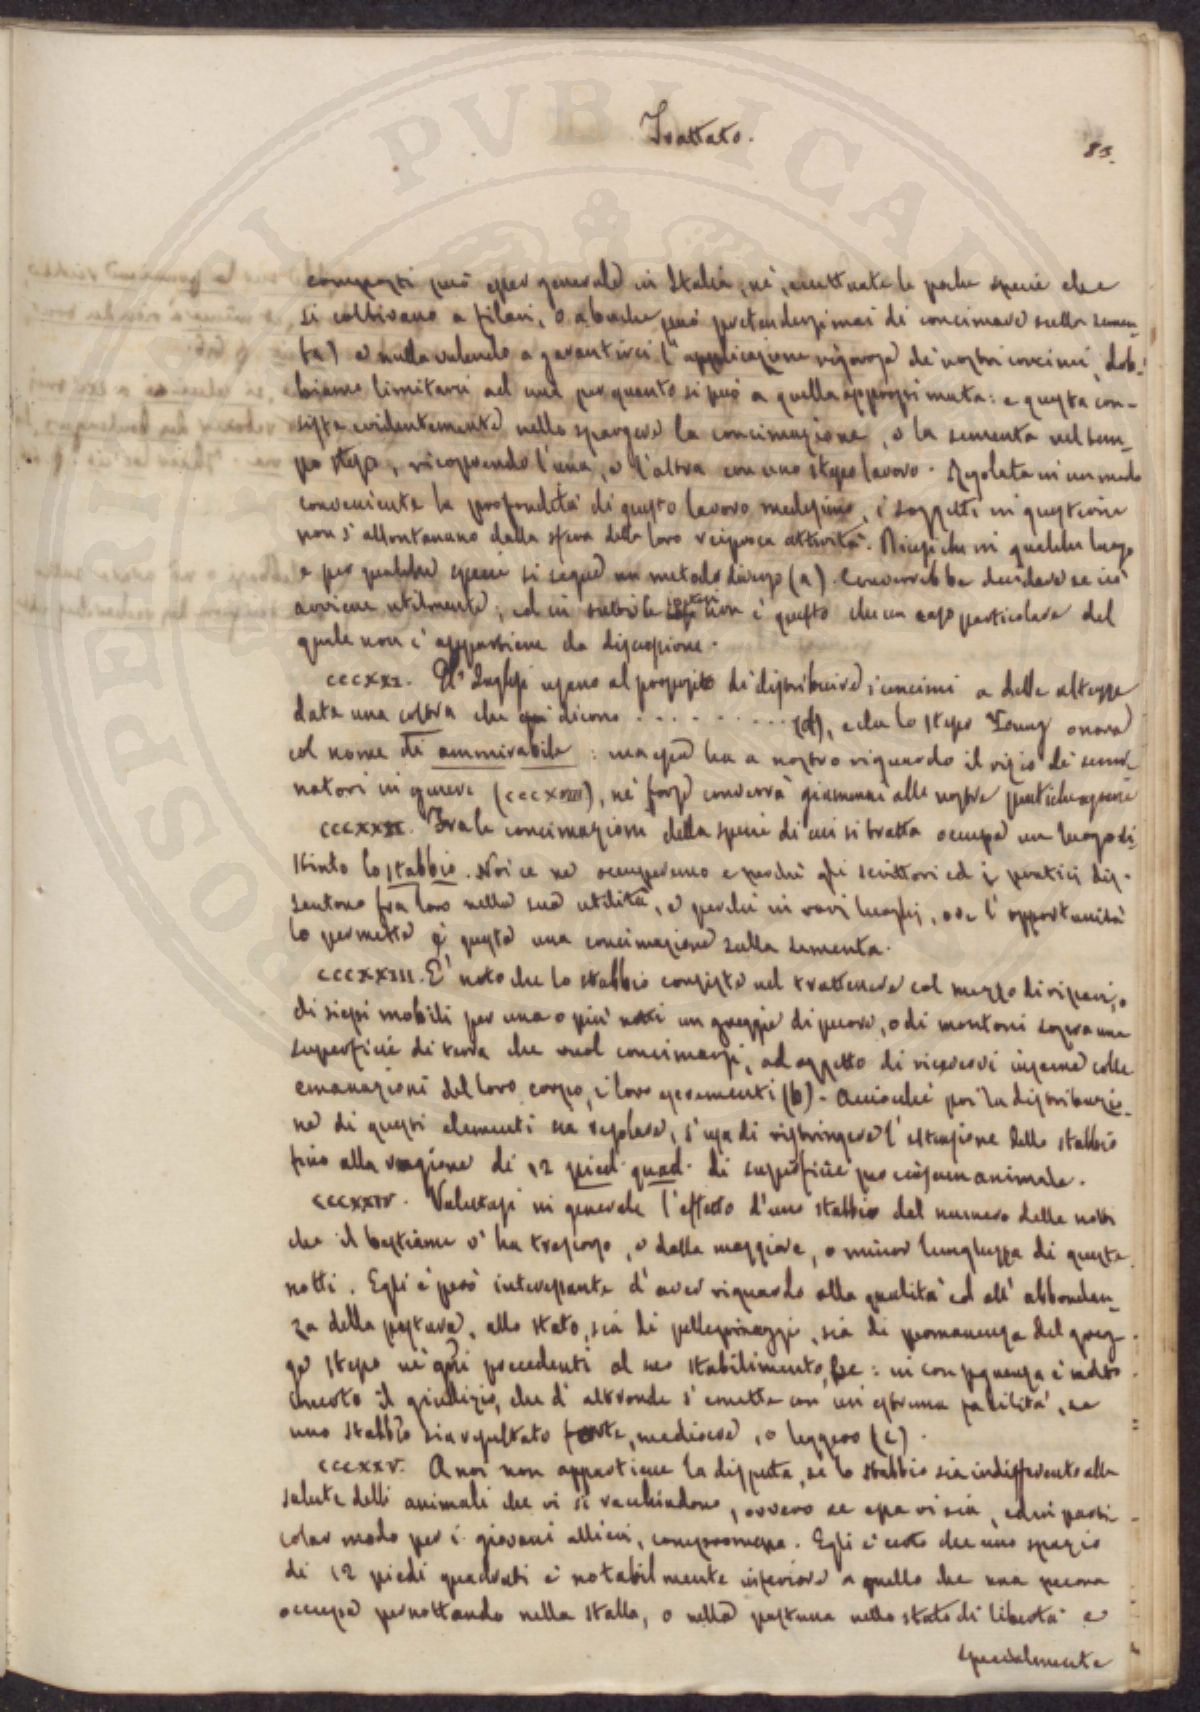 Trattato.
83.
composti può esser generale in Italia, nè, eccettuate le poche specie che
si coltivano a filari, o a buche, può pretendersi mai di concimare sulla semen-
ta) e nulla valendo a garantirci l'applicazione rigorosa de' nostri concimi, dob-
biamo limitarci ad una per quanto si può a quella approssimata: e questa con-
siste evidentemente nello spargere la concimazione, e la sementa nel tem-
po stesso, ricoprendo l'una, e l'altra con uno stesso lavoro. Regolata in un modo
conveniente la profondità di questo lavoro medesimo, i soggetti in questione
non s'allontanano dalla sfera della loro reciproca attività. Dicesi che in qualche luogo
e per qualche specie si segue un metodo diverso (a). Converrebbe decidere se ciò
avviene utilmente; ed in è questo che un caso particolare del
quale non c'appartiene da discussione.
CCCXXI. Gl'Inglesi usano al proposito di distribuire i concimi a delle altezze
data una coltra che dicono . . . . . . . . . (d), e che lo stesso Young onora
col nome di ammirabile: ma essa ha a nostro riguardo il vizio de' semi-
natori in genere (CCCXVIII), nè forse converrà giammai alle nostre pratiche agrarie
CCCXXII. Fra le concimazioni della specie di cui si tratta occupa un luogo di-
stinto lo stabbio. Noi ce ne occuperemo e perchè gli scrittori ed i pratici dis-
sentono fra loro nella sua utilità, e perchè in varj luoghi, ove l'opportunità
lo permette è questa una concimazione sulla sementa.
CCCXXIII. E' noto che lo stabbio consiste nel trattenere col mezzo di ripari, o
di siepi mobili per una o più notti un gregge di pecore, o di montoni sopra una
superficie di terra che vuol concimarsi, ad oggetto di ricevervi insieme colle
emanazioni del loro corpo, i loro escrementi (b). Acciocchè poi la distribuzio-
ne di questi elementi sia regolare, s'usa di ristringere l'estensione dello stabbio
fino alla ragione di 12 pied. quad. di superficie per ciascun animale.
CCCXXIV. Valutasi in generale l'effetto d'uno stabbio dal numero delle notti
che il bestiame v'ha trascorso, e dalla maggiore, o minor lunghezza di queste
notti. Egli è però interessante d'aver riguardo alla qualità ed all'abbondan-
za della pastura, allo stato, sia di pellegrinaggio, sia di permanenza del greg-
ge stesso ne' giorni precedenti al suo stabilimento, &c: in conseguenza è molto
incerto il giudizio, che d'altronde s'emette con un'estrema facilità, se
uno stabbio sia resultato forte, mediocre, o leggero (c).
CCCXXV. A noi non appartiene la disputa, se lo stabbio sia indifferente alla
salute delli animali che vi si racchiudono, ovvero se essa vi sia, ed in parti-
colar modo per i giovani allievi, compromessa. Egli è certo che uno spazio
di 12 piedi quadrati è notabilmente inferiore a quello che una pecora
occupa pernottando nella stalla, o nella pastura nello stato di libertà e
specialmente